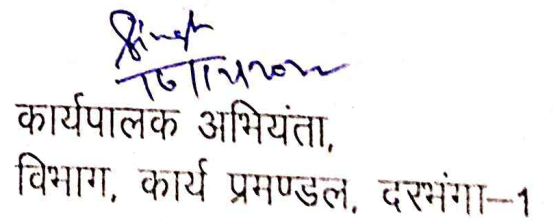 Singh
कार्यपालक अभियंता,
विभाग, कार्य प्रमण्डल, दरभंगा–1